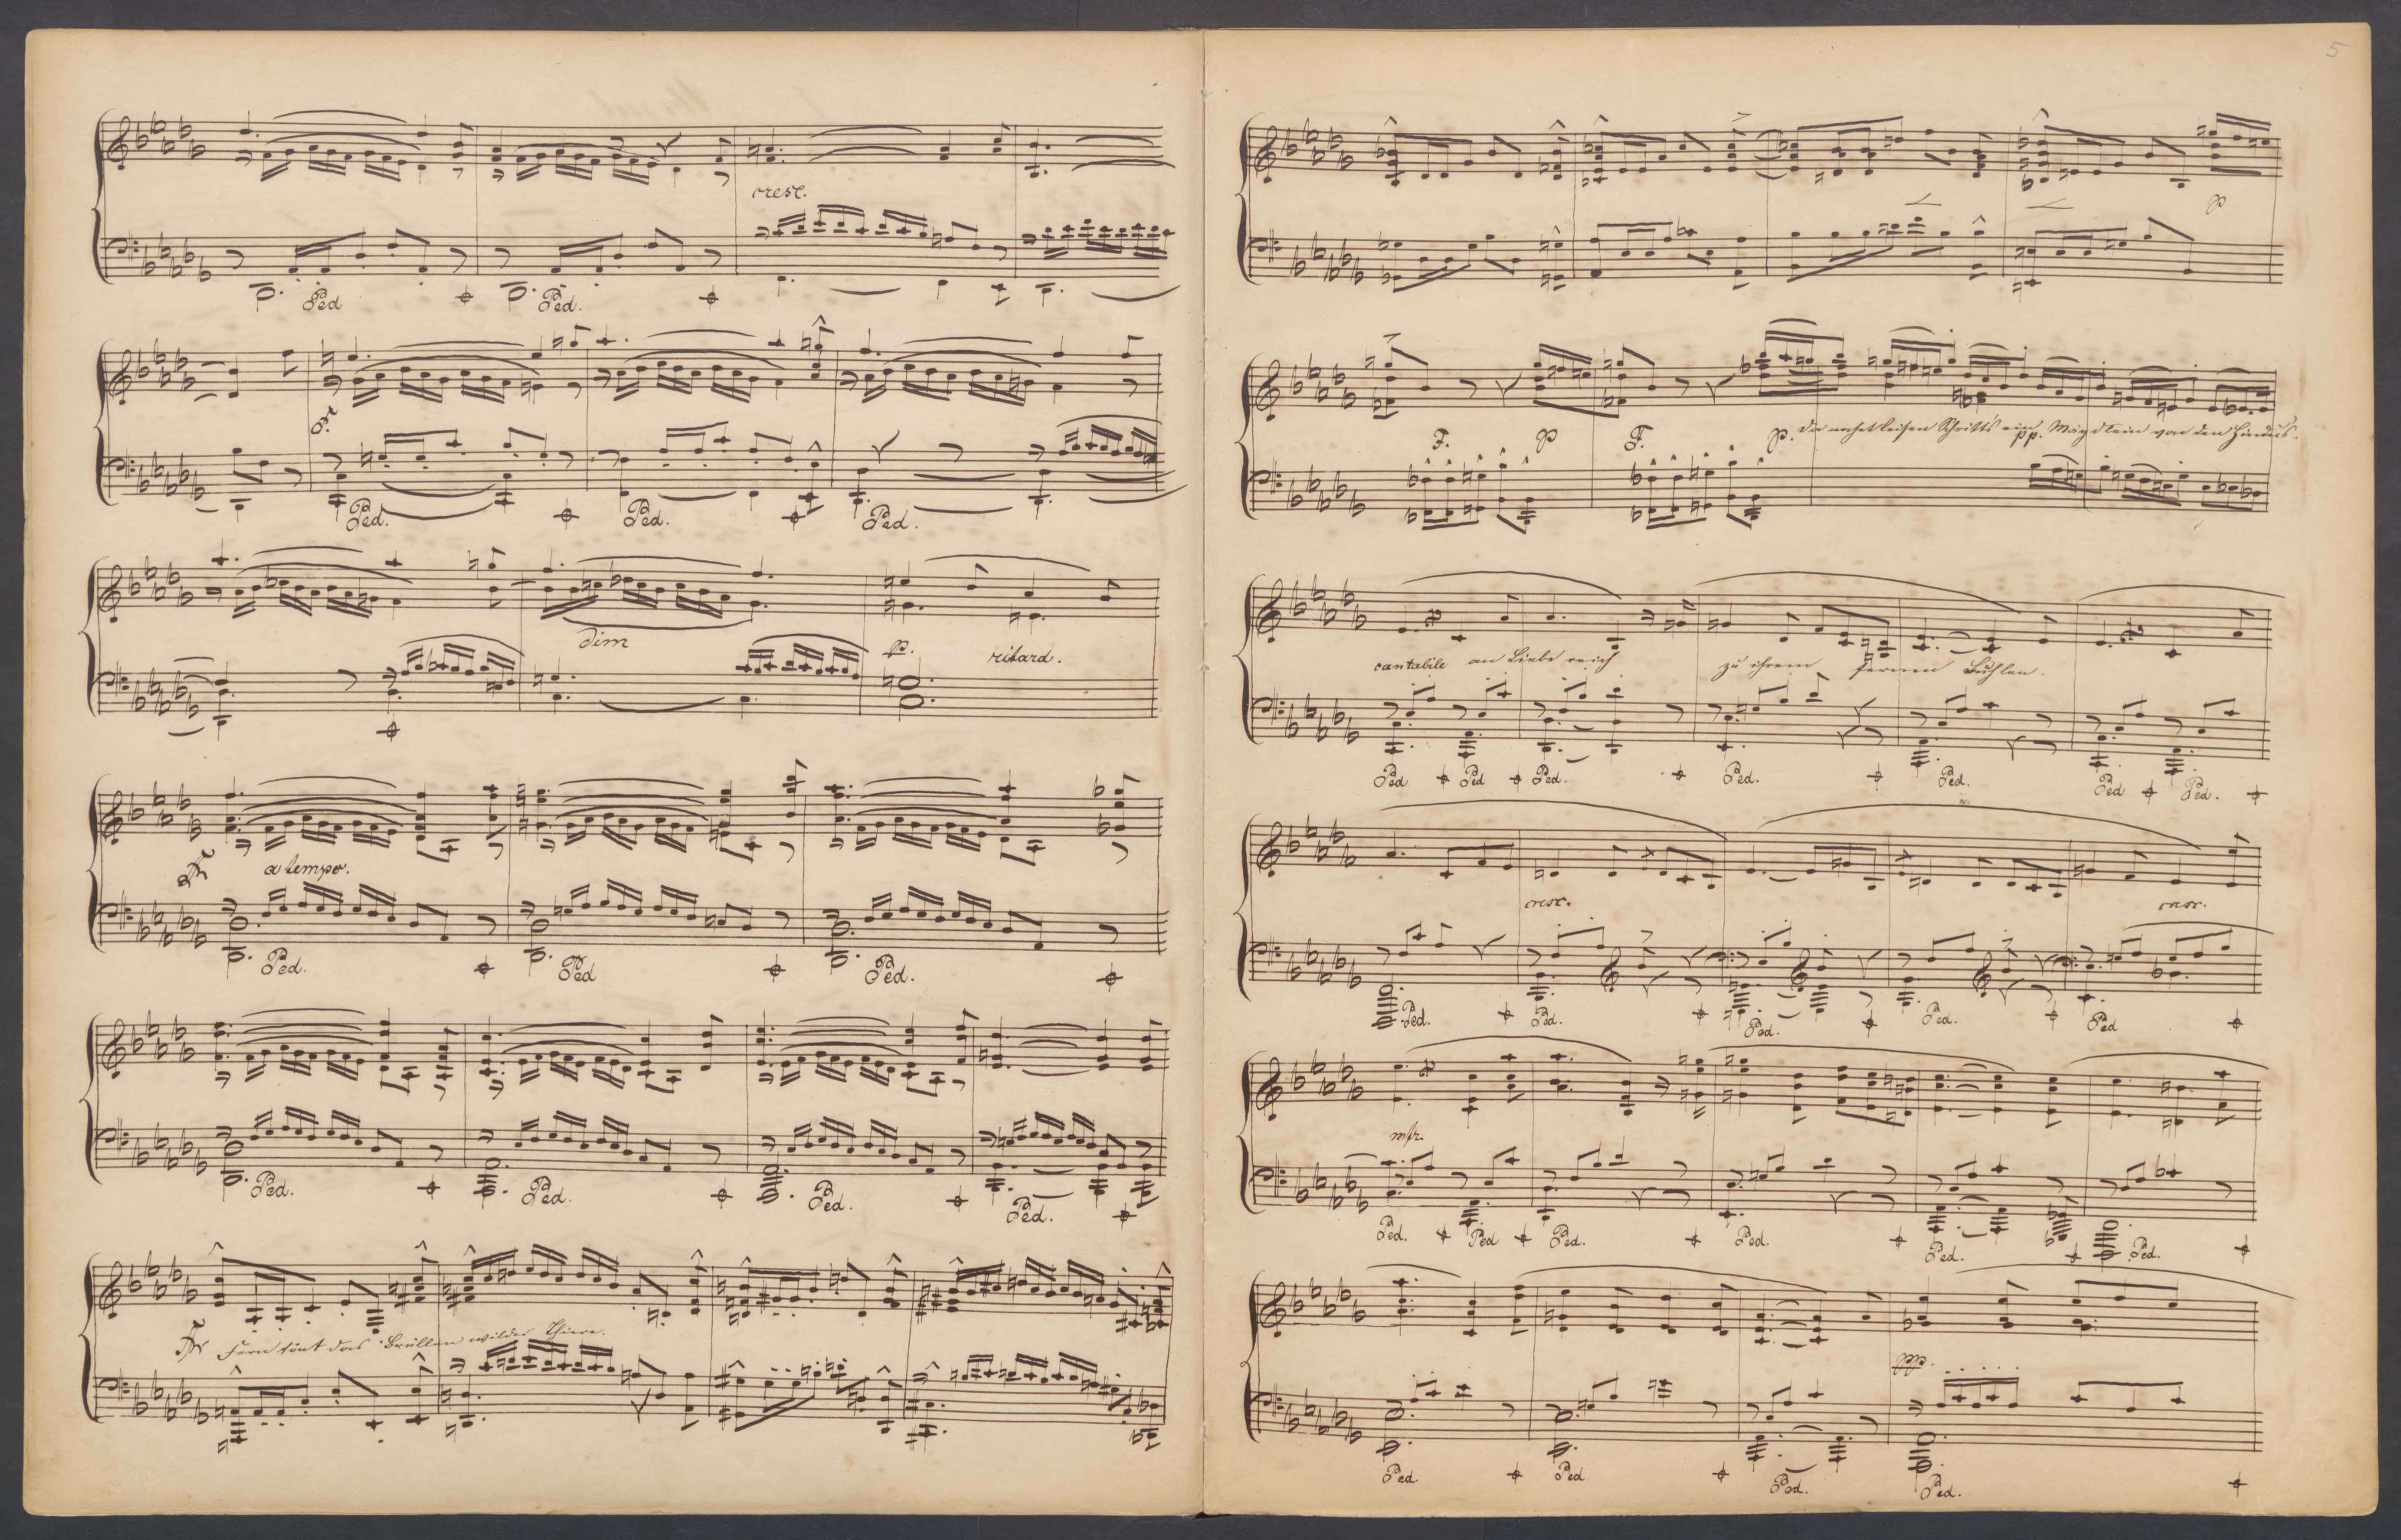 cresc.
Ped Ped.
Fr
Ped. Ped. Ped.
dim
p. ritard.
a tempo.
Ped. Ped Ped.
Ped. Ped. Ped. Ped.
Fern tönt das Brüllen wilder Thiere.
5
p
F. p F. p. Da nahet leisen Schritts ein Mägdlein von den Hindus.
pp.
cantabile an Liebe reich zu ihrem fernen Buhlen.
Ped Ped Ped. Ped. Ped. Ped Ped.
cresc. cresc.
Ped. Ped. Ped. Ped. Ped
Ped. Ped Ped. Ped. Ped. Ped.
ppp.
Ped. Ped Ped. Ped.